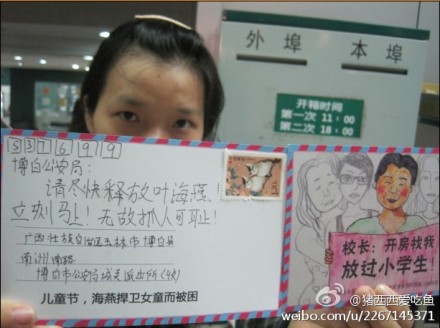 外埠 本埠
开箱时间
第一次 11:00
第二次 18:00
537699
博白公安局:
请尽快释放叶海燕!
立刻马上!无故抓人可耻!
广西壮族自治区玉林市博白县
南洲南路
儿童节,海燕捍卫女童而被困
校长:开房找我
放过小学生!
@猪西西爱吃鱼
weibo.com/u/2267145371